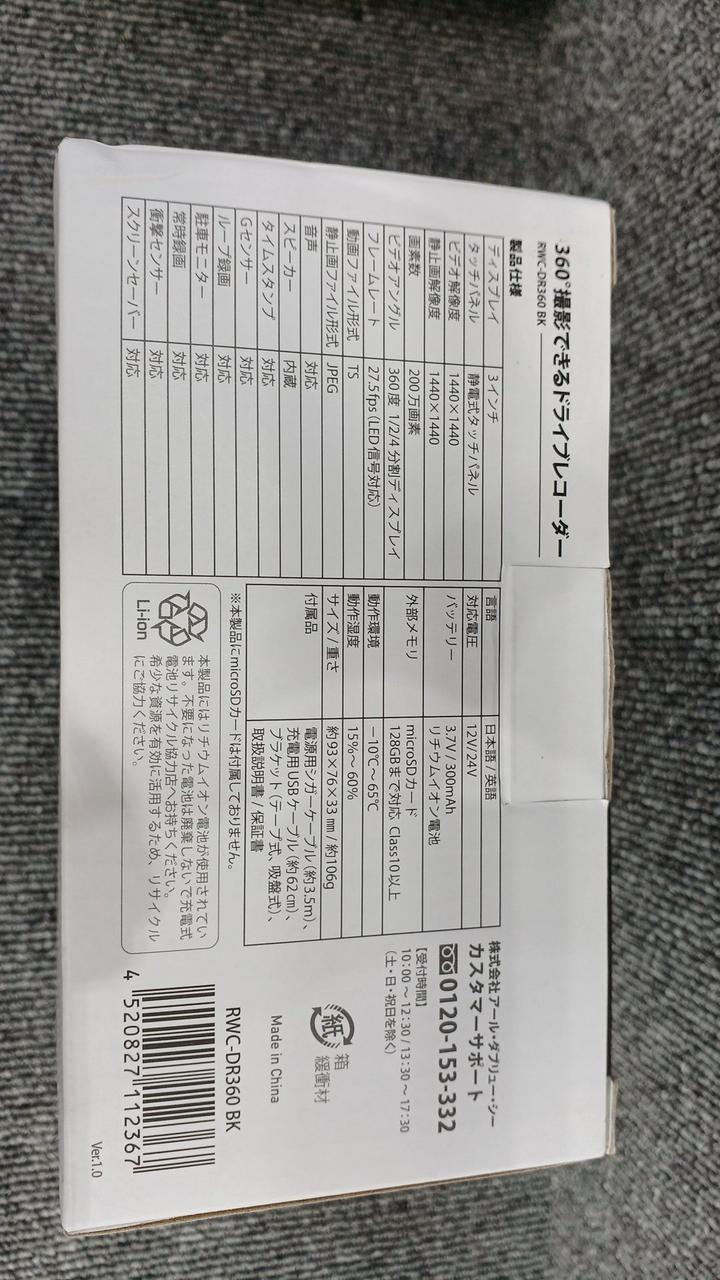 360°撮影できるドライブレコーダー
RWC-DR360 BK
製品仕様
ディスプレイ 3インチ
タッチパネル 静電式タッチパネル
ビデオ解像度 1440×1440
静止画解像度 1440×1440
画素数 200万画素
ビデオアングル 360度 1/2/4分割ディスプレイ
フレームレート 27.5fps(LED信号対応)
動画ファイル形式 TS
静止画ファイル形式 JPEG
音声 対応
スピーカー 内蔵
タイムスタンプ 対応
Gセンサー 対応
ループ録画 対応
駐車モニター 対応
常時録画 対応
衝撃センサー 対応
スクリーンセーバー 対応
言語 日本語/英語
対応電圧 12V/24V
バッテリー 3.7V/300mAh
リチウムイオン電池
外部メモリ microSDカード
128GBまで対応 Class10以上
動作環境 −10℃〜65℃
動作湿度 15%〜60%
サイズ/重さ 約93×76×33㎜/約106g
付属品 電源用シガーケーブル(約3.5m)、
充電用USBケーブル(約62㎝)、
ブラケット(テープ式、吸盤式)、
取扱説明書/保証書
※本製品にmicroSDカードは付属しておりません。
Li-ion
本製品にはリチウムイオン電池が使用されてい
ます。不要になった電池は廃棄しないで充電式
電池リサイクル協力店へお持ちください。
希少な資源を有効に活用するため、リサイクル
にご協力ください。
株式会社アール・ダブリュー・シー
カスタマーサポート
0120-153-332
【受付時間】
10:00〜12:30/13:30〜17:30
(土・日・祝日を除く)
紙
箱
緩衝材
Made in China
RWC-DR360 BK
4 520827 112367
Ver.1.0